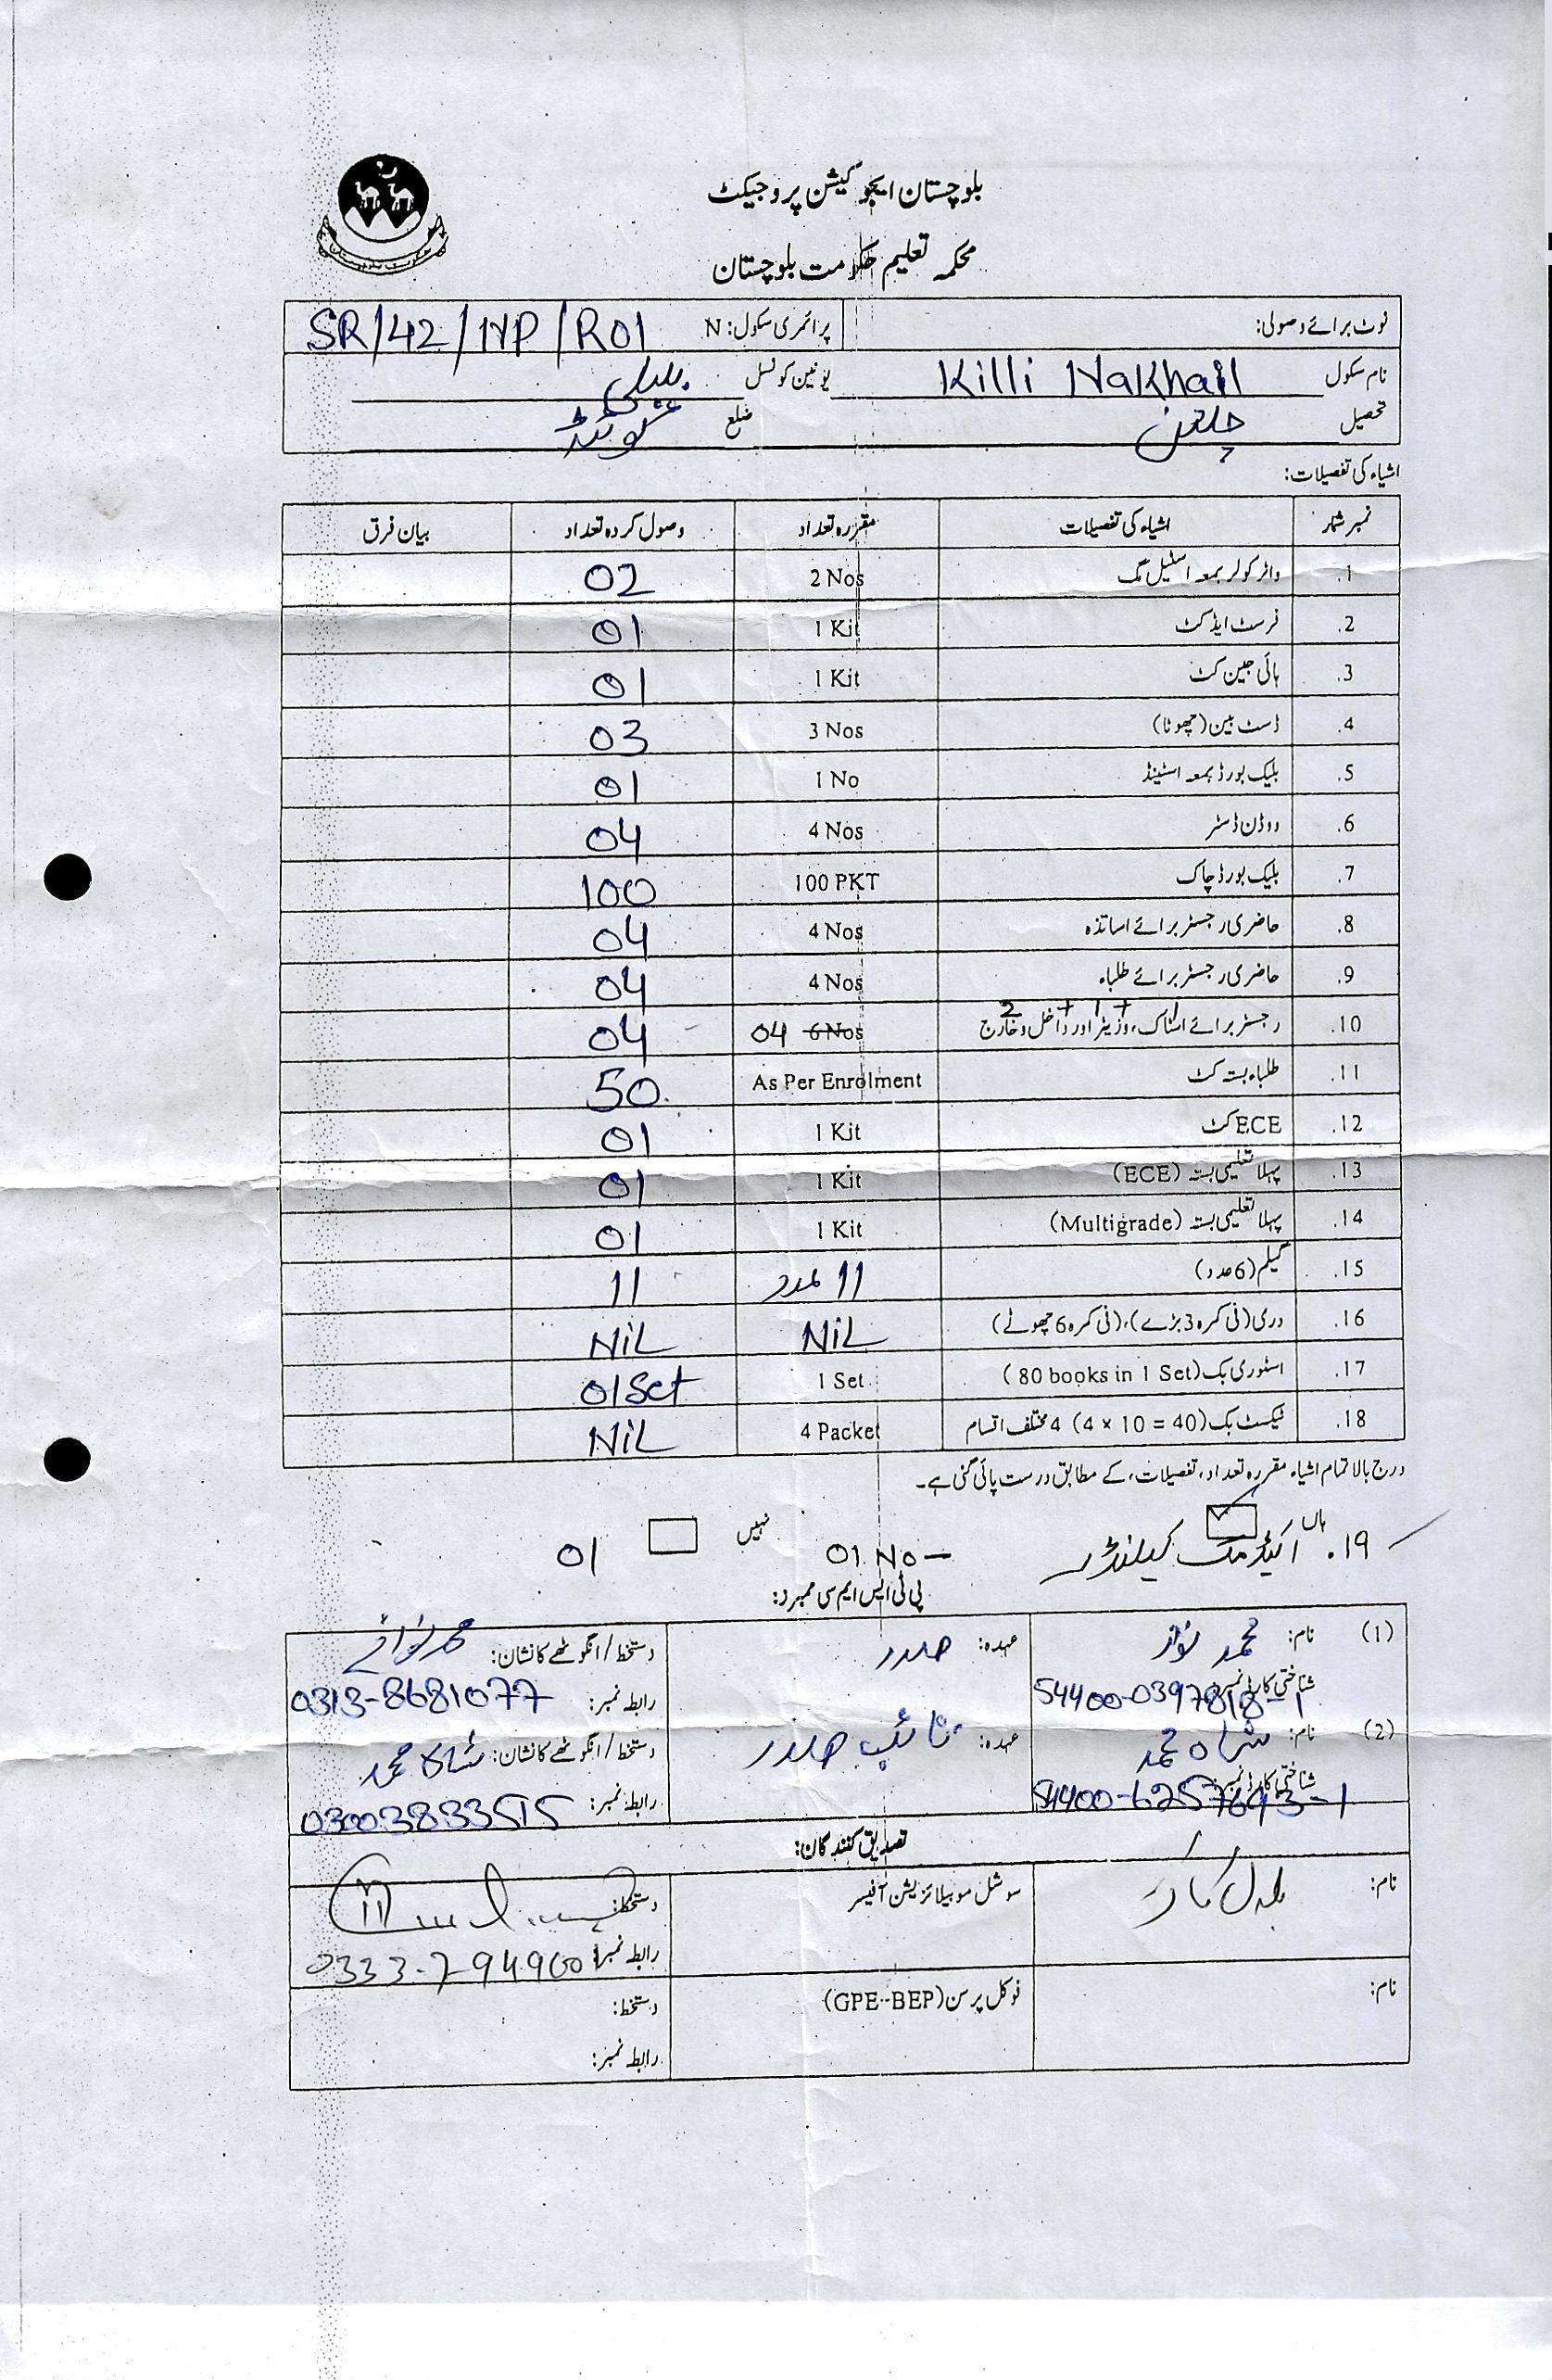 بلوچستان ایجوکیشن پروجیکٹ
محکمہ تعلیم حکومت بلوچستان
نوٹ برائے وصولی: پرائمری سکول: N SR/42/NP/R01
نام سکول Killi Nakhail یونین کونسل بلیلی
تحصیل چلتن ضلع کوئٹہ
اشیاء کی تفصیلات:
نمبر شمار اشیاء کی تفصیلات مقررہ تعداد وصول کردہ تعداد بیان فرق
1. واٹر کولر بمعہ اسٹیل مگ 2 Nos 02
2. فرسٹ ایڈ کٹ 1 Kit 01
3. ہائی جین کٹ 1 Kit 01
4. ڈسٹ بین (چھوٹا) 3 Nos 03
5. بلیک بورڈ بمعہ اسٹینڈ 1 No 01
6. ووڈن ڈسٹر 4 Nos 04
7. بلیک بورڈ چاک 100 PKT 100
8. حاضری رجسٹر برائے اساتذہ 4 Nos 04
9. حاضری رجسٹر برائے طلباء 4 Nos 04
2 + 1 + 1
10. رجسٹر برائے اسٹاک، وزیٹر اور داخل و خارج 04 6 Nos 04
11. طلباء بستہ کٹ As Per Enrolment 50
12. ECE کٹ 1 Kit 01
13. پہلا تعلیمی بستہ (ECE) 1 Kit 01
14. پہلا تعلیمی بستہ (Multigrade) 1 Kit 01
15. گیلم (6 عدد) 11 عدد 11
16. دری (فی کمرہ 3 بڑے)، (فی کمرہ 6 چھوٹے) NIL NIL
17. اسٹوری بک (80 books in 1 Set) 1 Set 01 Set
18. ٹیکسٹ بک (4 × 10 = 40) 4 مختلف اقسام 4 Packet NIL
درج بالا تمام اشیاء مقررہ تعداد، تفصیلات، کے مطابق درست پائی گئی ہے۔
ہاں نہیں
19. اکیڈمک کیلنڈر 01 No - 01
پی ٹی ایس ایم سی ممبرد:
(1) نام: محمد نواز عہدہ: صدر دستخط/انگوٹھے کا نشان: محمد نواز
شناختی کارڈ نمبر: 54400-0397818-1 رابطہ نمبر: 0313-8681077
(2) نام: شاہ محمد عہدہ: نائب صدر دستخط/انگوٹھے کا نشان: شاہ محمد
شناختی کارڈ نمبر: 54400-6257693-1 رابطہ نمبر: 03003833515
تصدیق کنندگان:
نام: سوشل موبیلائزیشن آفیسر دستخط:
رابطہ نمبر: 0333-7949001
نام: فوکل پرسن (GPE-BEP) دستخط:
رابطہ نمبر: